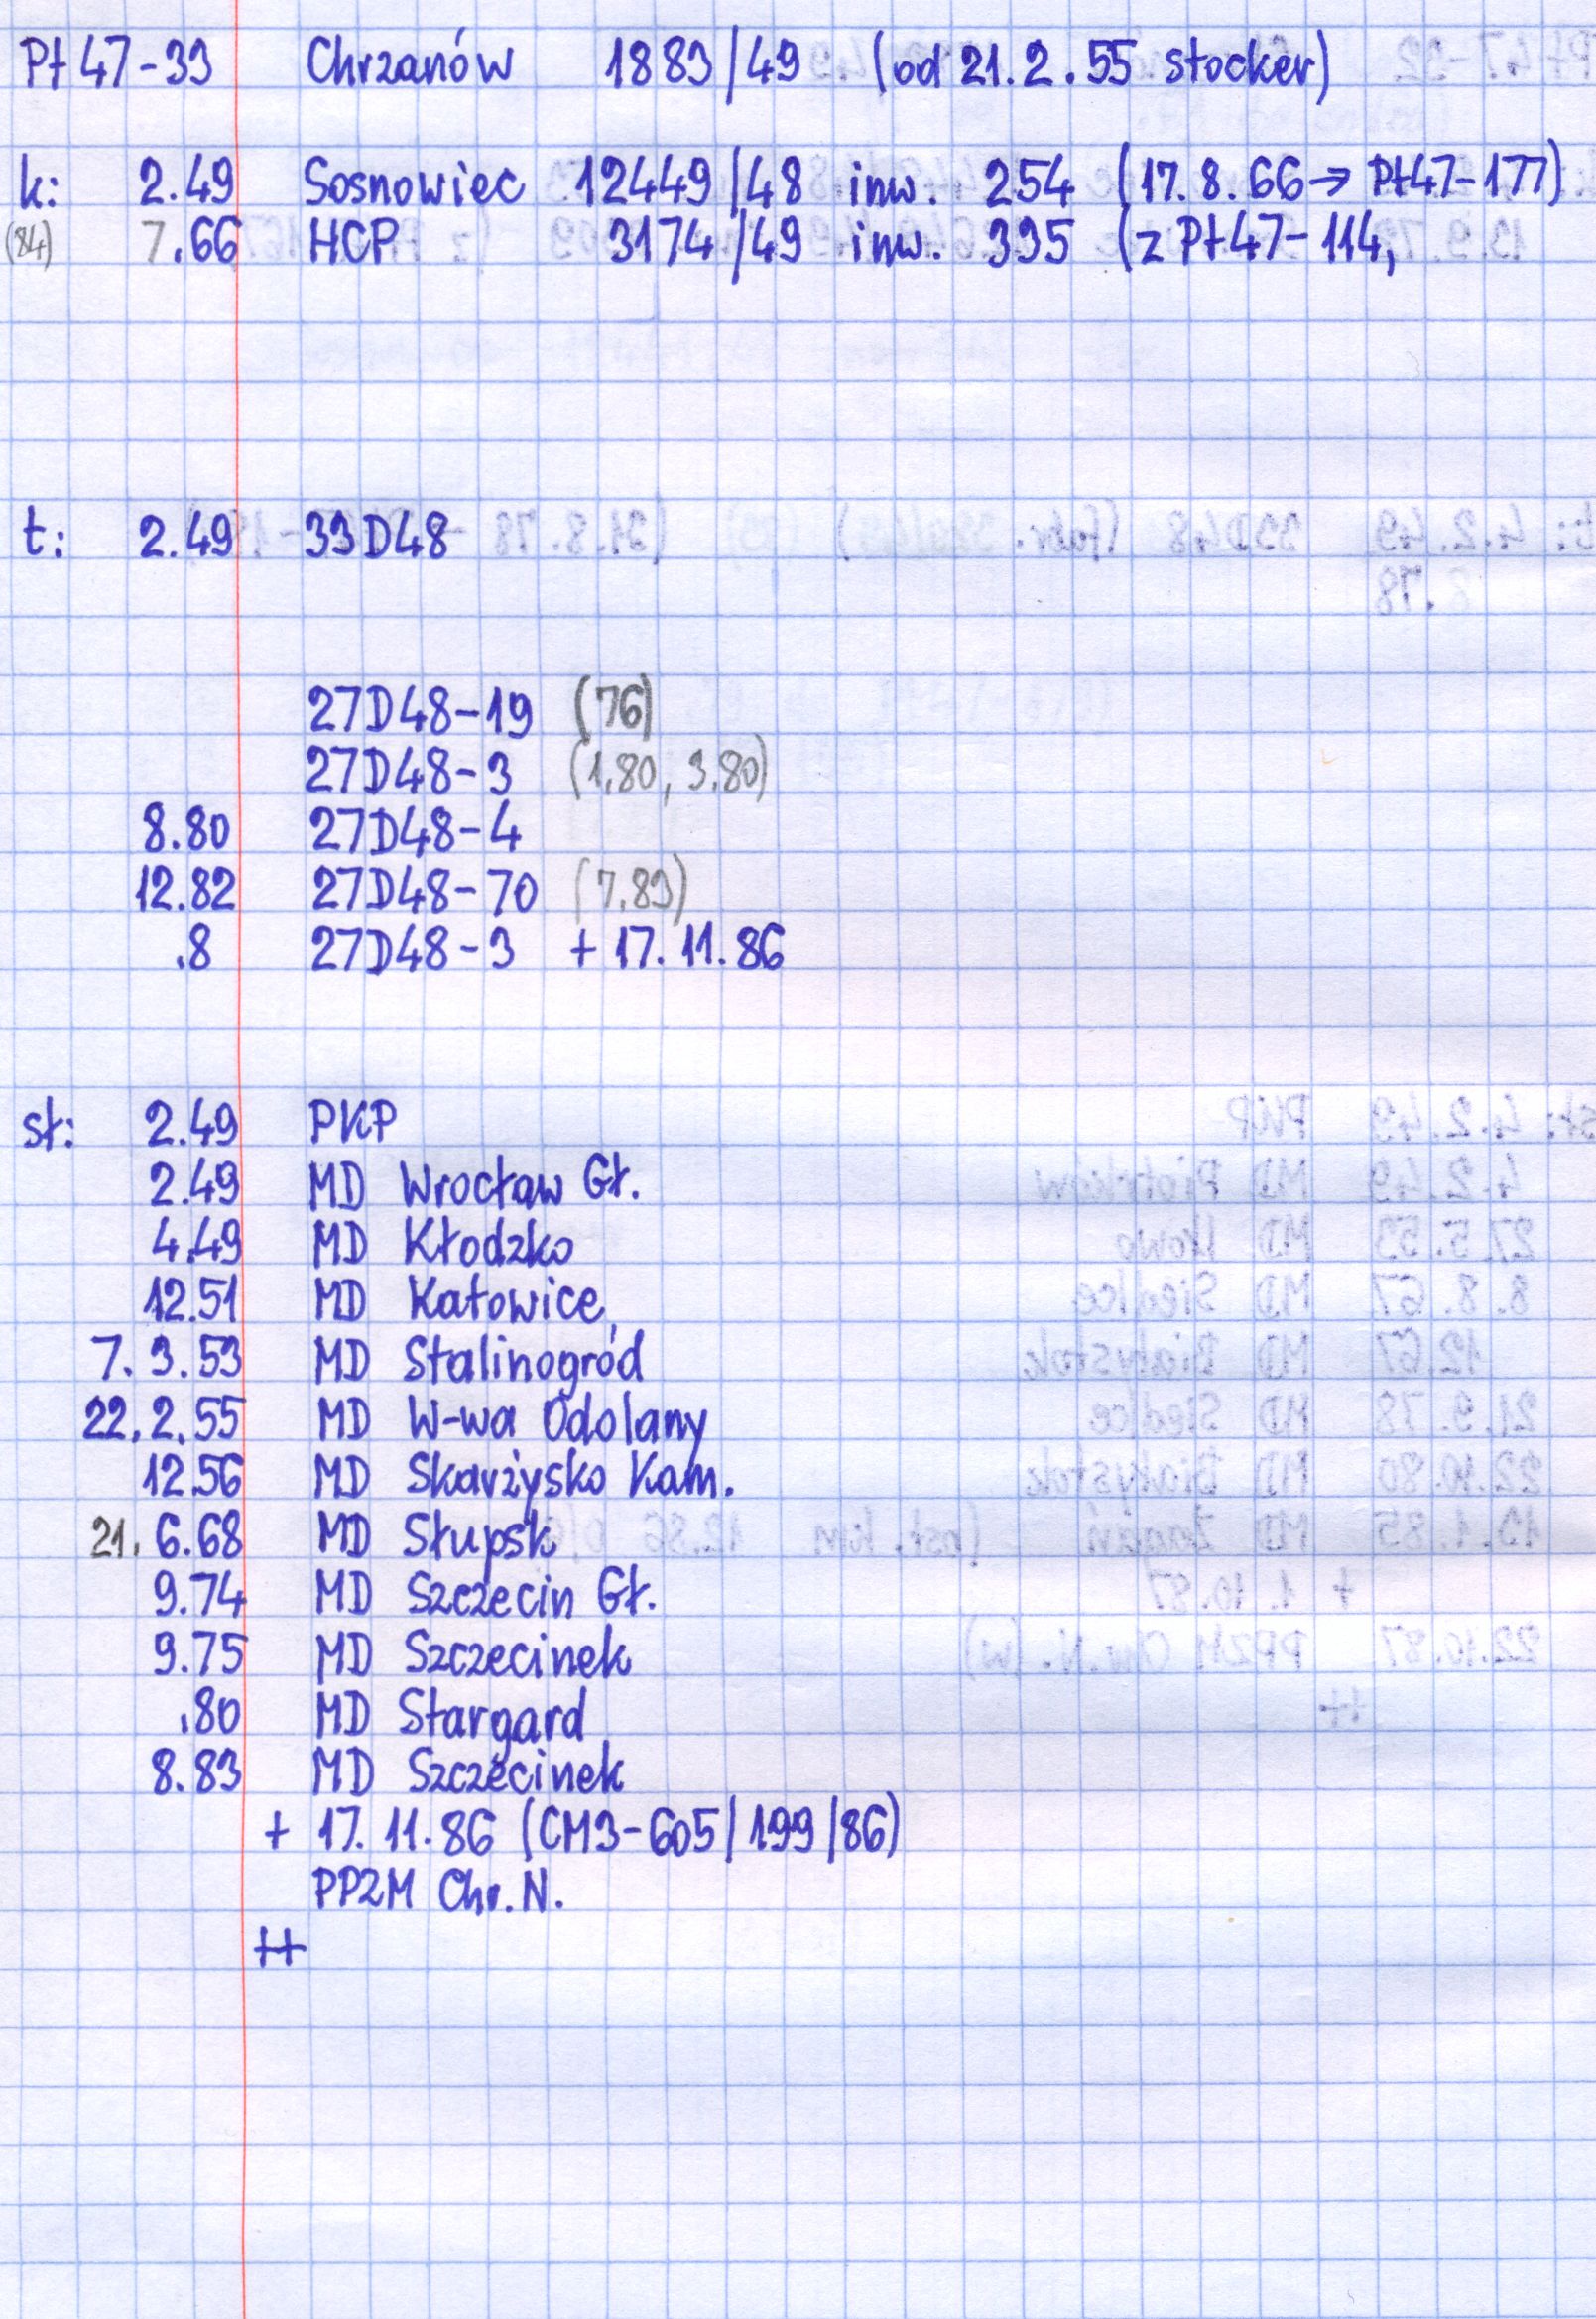 Pt47-33 Chrzanów 1883/49 (od 21.2.55 stocker)
k: 2.49 Sosnowiec 12449/48 inw. 254 (17.8.66→ Pt47-177)
(84) 7.66 HCP 3174/49 inw. 395 (z Pt47-114,
t: 2.49 33D48
27D48-19 (76)
27D48-3 (1.80, 3.80)
8.80 27D48-4
12.82 27D48-70 (7.83)
.8 27D48-3 + 17.11.86
st: 2.49 PKP
2.49 MD Wrocław Gł.
4.49 MD Kłodzko
12.51 MD Katowice
7.3.53 MD Stalinogród
22.2.55 MD W-wa Odolany
12.56 MD Skarżysko Kam.
21.6.68 MD Słupsk
9.74 MD Szczecin Gł.
9.75 MD Szczecinek
.80 MD Stargard
8.83 MD Szczecinek
+ 17.11.86 (CM3-605/199/86)
PPZM Chr.N.
++